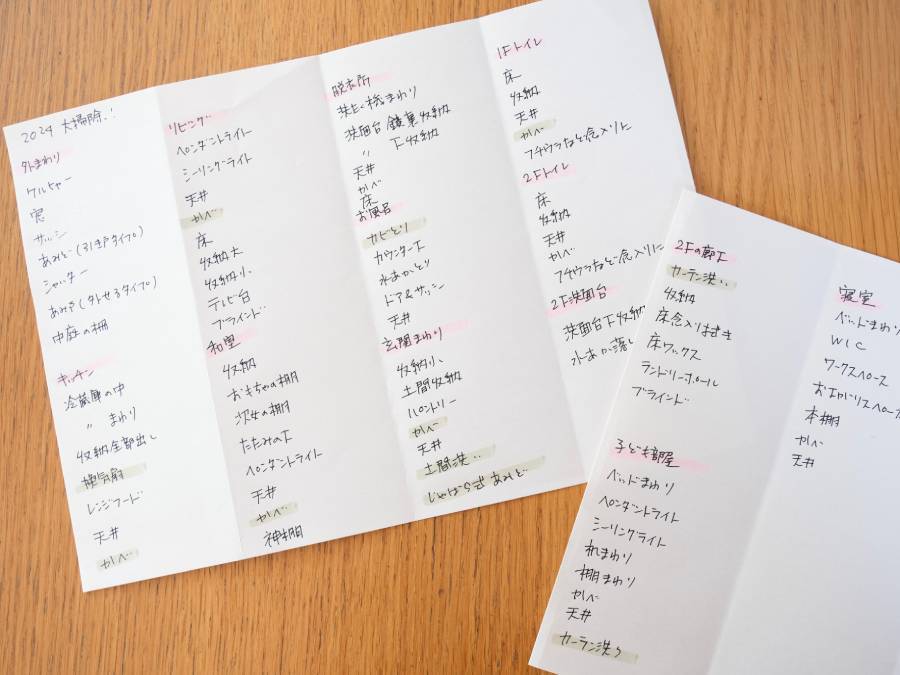 2024 大掃除!!
外まわり
ケルヒャー
窓
サッシ
あみど(引き戸タイプ)
シャッター
あみど(外せるタイプ)
中庭の柵
キッチン
冷蔵庫の中
〃 まわり
収納全部出し
換気扇
レンジフード
天井
かべ
リビング
ペンダントライト
シーリングライト
天井
かべ
床
収納大
収納小
テレビ台
ブラインド
和室
収納
おもちゃの棚
次女の棚
たたみの下
ペンダントライト
天井
かべ
神棚
脱衣所
洗たく機まわり
洗面台 鏡裏収納
〃 下収納
天井
かべ
床
お風呂
カビとり
カウンター下
水あかとり
ドア&サッシ
天井
玄関まわり
収納小
土間収納
パントリー
かべ
天井
土間洗う
じゃばら式あみど
1Fトイレ
床
収納
天井
かべ
フチウラなど念入りに
2Fトイレ
床
収納
天井
かべ
フチウラなど念入りに
2F洗面台
洗面台下収納
水あか落し
2Fの廊下
カーテン洗う
収納
床念入りはきそうじ
床ワックス
ランドリーポール
ブラインド
子ども部屋
ベッドまわり
ペンダントライト
シーリングライト
机まわり
棚まわり
かべ
天井
カーテン洗う
寝室
ベッドまわり
WIC
ワークスペース
本棚
かべ
天井